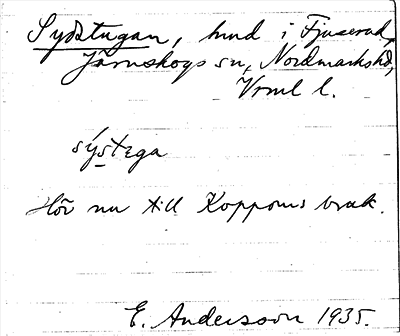 Sydstugan, hmd i Fjuserud,
Järnskogs sn, Nordmarkshd,
Vrml l.
sýstega
Hör nu till Koppoms bruk.
E. Andersson 1935.